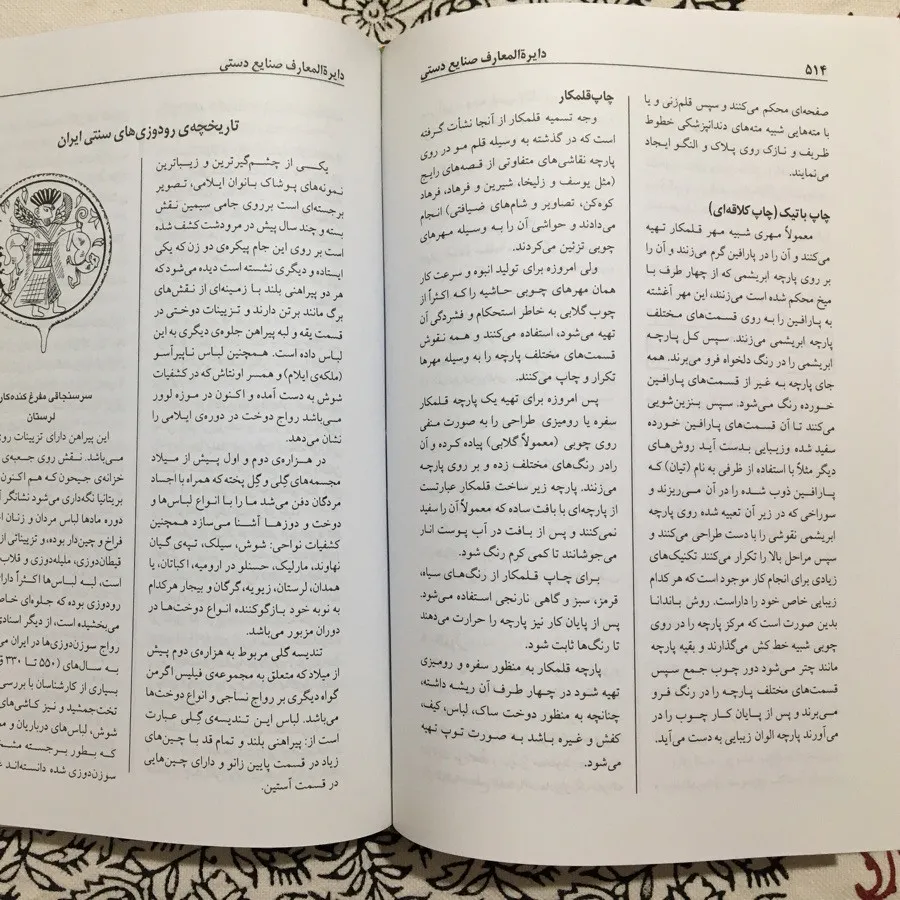 ۵۱۴
دایرة‌المعارف صنایع دستی
صفحه‌ای محکم می‌کنند و سپس قلم‌زنی و یا
با مته‌هایی شبیه مته‌های دندانپزشکی خطوط
ظریف و نازک روی پلاک و النگو ایجاد
می‌نمایند.
چاپ باتیک (چاپ کلاقه‌ای)
معمولاً مهری شبیه مهر قلمکار تهیه
می‌کنند و آن را در پارافین گرم می‌زنند و آن را
بر روی پارچه ابریشمی که از چهار طرف با
میخ محکم شده است می‌زنند، این مهر آغشته
به پارافین را به روی قسمت‌های مختلف
پارچه ابریشمی می‌زنند. سپس کل پارچه
ابریشمی را در رنگ دلخواه فرو می‌برند. همه
جای پارچه به غیر از قسمت‌های پارافین
خورده رنگ می‌شود. سپس بنزین‌شویی
می‌کنند تا آن قسمت‌های پارافین خورده
سفید شده وزیبایی بدست آید. روش‌های
دیگر مثلاً با استفاده از ظرفی به نام (تیان) که
پارافین ذوب شده را در آن می‌ریزند و
سوراخی که در زیر آن تعبیه شده روی پارچه
ابریشمی نقوشی را با دست طراحی می‌کنند و
سپس مراحل بالا را تکرار می‌کنند تکنیک‌های
زیادی برای انجام کار موجود است که هر کدام
زیبایی خاص خود را داراست. روش باندانا
بدین صورت است که مرکز پارچه را در روی
چوبی شبیه خط کش می‌گذارند و بقیه پارچه
مانند چتر می‌شود دور چوب جمع سپس
قسمت‌های مختلف پارچه را در رنگ فرو
می‌برند و پس از پایان کار چوب را در
می‌آورند پارچه الوان زیبایی به دست می‌آید.
چاپ‌قلمکار
وجه تسمیه قلمکار از آنجا نشأت گرفته
است که در گذشته به وسیله قلم مو در روی
پارچه نقاشی‌های متفاوتی از قصه‌های رایج
(مثل یوسف و زلیخا، شیرین و فرهاد، فرهاد
کوه‌کن، تصاویر و شام‌های ضیافتی) انجام
می‌دادند و حواشی آن را به وسیله مهرهای
چوبی تزئین می‌کردند.
ولی امروزه برای تولید انبوه و سرعت کار
همان مهرهای چوبی حاشیه را که اکثراً از
چوب گلابی به خاطر استحکام و فشردگی آن
تهیه می‌شود، استفاده می‌کنند و همه نقوش
قسمت‌های مختلف پارچه را به وسیله مهرها
تکرار و چاپ می‌کنند.
پس امروزه برای تهیه یک پارچه قلمکار
سفره یا رومیزی طراحی را به صورت منفی
روی چوبی (معمولاً گلابی) پیاده کرده و آن
رادر رنگ‌های مختلف زده و بر روی پارچه
می‌زنند. پارچه زیر ساخت قلمکار عبارتست
از پارچه‌ای با بافت ساده که معمولاً آن را سفید
نمی‌کنند و پس از بافت در آب پوست انار
می‌جوشانند تا کمی کرم رنگ شود.
برای چاپ قلمکار از رنگ‌های سیاه،
قرمز، سبز و گاهی نارنجی استفاده می‌شود.
پس از پایان کار نیز پارچه را حرارت می‌دهند
تا رنگ‌ها ثابت شود.
پارچه قلمکار به منظور سفره و رومیزی
تهیه شود در چهار طرف آن ریشه داشته،
چنانچه به منظور دوخت ساک، لباس، کیف،
کفش و غیره باشد به صورت توپ تهیه
می‌شود.
دایرة‌المعارف صنایع دستی
تاریخچه‌ی رودوزی‌های سنتی ایران
یکی از چشم‌گیرترین و زیباترین
نمونه‌های پوشاک بانوان ایلامی، تصویر
برجسته‌ای است برروی جامی سیمین نقش
بسته و چند سال پیش در مرودشت کشف شده
است بر روی این جام پیکره‌ی دو زن که یکی
ایستاده و دیگری نشسته است دیده می‌شود که
هر دو پیراهنی بلند با زمینه‌ای از نقش‌های
برگ مانند برتن دارند و تزیینات دوختی در
قسمت یقه و لبه پیراهن جلوه‌ی دیگری به این
لباس داده است. همچنین لباس ناپیرآسو
(ملکه‌ی ایلام) و همسر اونتاش که در کشفیات
شوش به دست آمده و اکنون در موزه لوور
می‌باشد رواج دوخت در دوره‌ی ایلامی را
نشان می‌دهد.
در هزاره‌ی دوم و اول پیش از میلاد
مجسمه‌های گِلی و گِل پخته که همراه با اجساد
مردگان دفن می‌شد ما را با انواع لباس‌ها و
دوخت و دوزها آشنا می‌سازد همچنین
کشفیات نواحی: شوش، سیلک، تپه‌ی گیان
نهاوند، مارلیک، حسنلو در ارومیه، اکباتان، یا
همدان، لرستان، زیویه، گرگان و بیجار هرکدام
به نوبه خود بازگوکننده انواع دوخت‌ها در
دوران مزبور می‌باشد.
تندیسه گلی مربوط به هزاره‌ی دوم پیش
از میلاد که متعلق به مجموعه‌ی فیلیس اگرمن
گواه دیگری بر رواج نساجی و انواع دوخت‌ها
می‌باشد. لباس این تندیسه‌ی گِلی عبارت
است از: پیراهنی بلند و تمام قد با چین‌های
زیاد در قسمت پایین زانو و دارای چین‌هایی
در قسمت آستین.
سرسنجاقی مفرغ کنده‌کار
لرستان
این پیراهن دارای تزیینات روی
می‌باشد. نقش روی جعبه‌ی
خزانه‌ی جیحون که هم اکنون
بریتانیا نگه‌داری می‌شود نشانگر
دوره مادها لباس مردان و زنان
فراخ و چین‌دار بوده، و تزییناتی از
قیطان‌دوزی، ملیله‌دوزی و قلاب
است، لبه لباس‌ها اکثراً دارا
رودوزی بوده که جلوه‌ای خاص
می‌بخشیده است، از دیگر اسنادی
رواج سوزن‌دوزی‌ها در ایران
به سال‌های (۵۵۰ تا ۳۳۰
بسیاری از کارشناسان با بررسی
تخت‌جمشید و نیز کاشی‌های
شوش، لباس‌های درباریان و
که بطور برجسته
سوزن‌دوزی شده دانسته‌اند